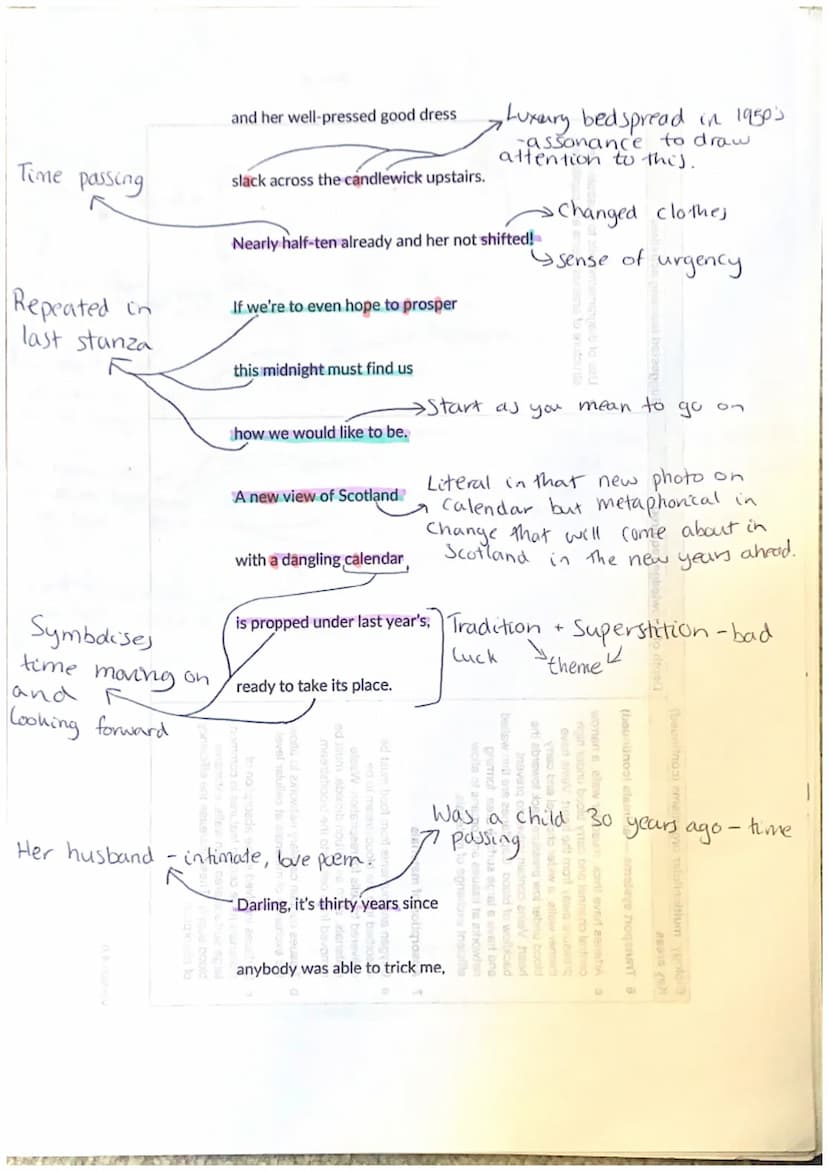 and her well-pressed good dress
Luxury bedspread in 1950's
-assonance to draw
attention to this.
Time passing
slack across the candlewick upstairs.
Changed clothes
Nearly half-ten already and her not shifted!
sense of urgency
Repeated in
last stanza
If we're to even hope to prosper
this midnight must find us
Start as you mean to go on
how we would like to be.
Literal in that new photo on
calendar but metaphorical in
change that will come about in
Scotland in the new years ahead.
A new view of Scotland
with a dangling calendar
is propped under last year's,
Tradition + Superstition - bad
luck
theme
Symbolises
time moving on
and
looking forward
ready to take its place.
Was a child 30 years ago - time
passing
Her husband - intimate, love poem.
Darling, it's thirty years since
anybody was able to trick me,